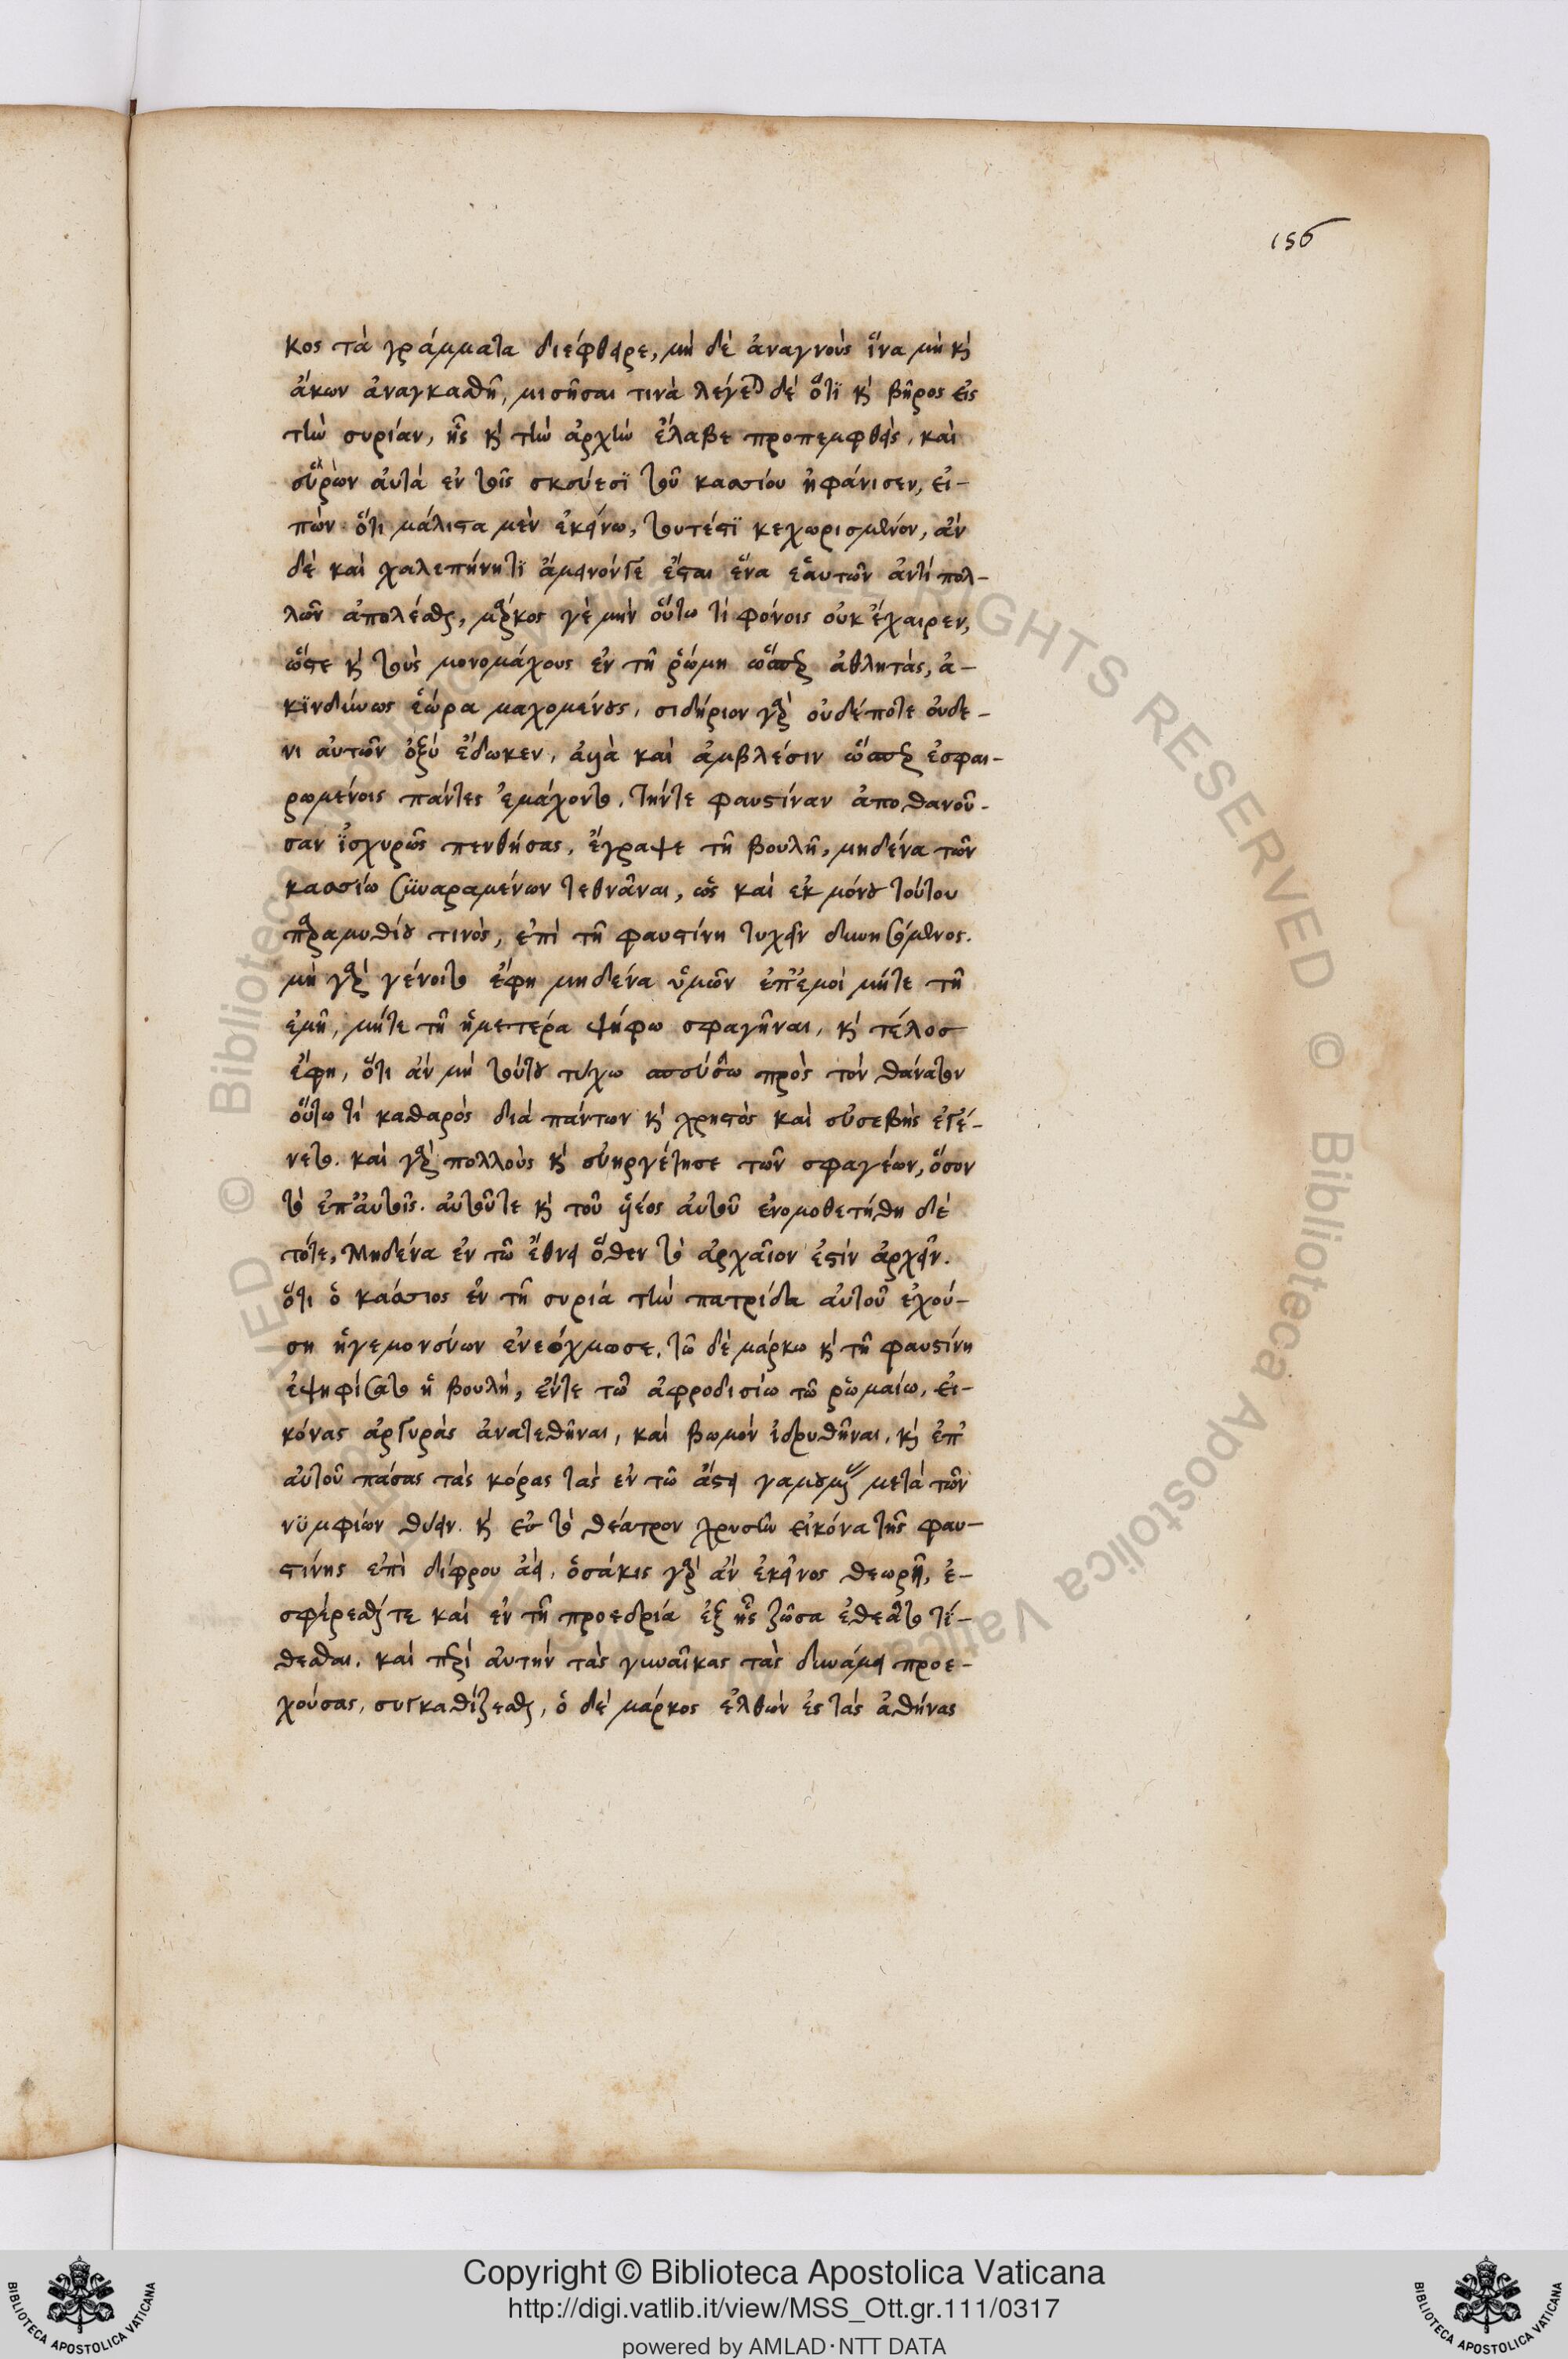 156
κος τὰ γράμματα διέφθειρε, μὴ δὲ ἀναγνοὺς ἵνα μὴ καὶ
ἄκων ἀναγκασθῆ, μισῆσαι τινὰ λέγεται δὲ ὅτι καὶ βῆρος εἰς
τὴν συρίαν, ἧς καὶ τὴν ἀρχὴν ἔλαβε προπεμφθεὶς, καὶ
εὑρὼν αὐτὰ ἐν τοῖς σκεύεσι τοῦ κασσίου ἠφάνισεν, εἰ-
πὼν ὅτι μάλιστα μὲν ἐκείνω, τουτέστι κεχωρισμένον, ἂν
δὲ καὶ χαλεπήνητι ἄμεινόν γε ἔσται ἕνα ἑαυτῶν ἀντὶ πολ-
λῶν ἀπολέσθαι, μάρκος γὲ μὴν οὕτω τὶ φόνοις οὐκ ἔχαιρεν,
ὥστε καὶ τοὺς μονομάχους ἐν τῆ ῥώμη ὥσπερ ἀθλητὰς, ἀ-
κινδύνως ἑώρα μαχομένους, σιδήριον γὰρ οὐδέποτε οὐδε-
νὶ αὐτῶν ὀξὺ ἔδωκεν, ἀλλὰ καὶ ἀμβλέσιν ὥσπερ ἐσφαι-
ρωμένοις πάντες ἐμάχοντο. τήντε φαυστίναν ἀποθανοῦ-
σαν ἰσχυρῶς πενθήσας, ἔγραψε τῆ βουλῆ, μηδένα τῶν
κασσίω συναραμένων τεθνᾶναι, ὡς καὶ ἐκ μόνου τούτου
παραμυθίου τινὸς, ἐπὶ τῆ φαυστίνη τυχεῖν δυνησόμενος.
μὴ γὰρ γένοιτο ἔφη μηδένα ὑμῶν ἐπ' ἐμοὶ μήτε τῆ
ἐμῆ, μήτε τῆ ἡμετέρα ψήφω σφαγῆναι, καὶ τέλος
ἔφη, ὅτι ἂν μὴ τούτου τύχω σπεύσω πρὸς τὸν θάνατον
οὕτω τὶ καθαρὸς διὰ πάντων καὶ χρηστὸς καὶ εὐσεβὴς ἐγέ-
νετο. καὶ γὰρ πολλοὺς καὶ εὐηργέτησε τῶν σφαγέων, ὅσον
τὸ ἐπ' αὐτοῖς. αὐτοῦτε καὶ τοῦ υἱέος αὐτοῦ ἐνομοθετήθη δὲ
τότε, Μηδένα ἐν τῶ ἔθνει ὅθεν τὸ ἀρχαῖον ἐστὶν ἀρχεῖν.
ὅτι ὁ κάσσιος ἐν τῆ συρία τὴν πατρίδα αὐτοῦ ἐχού-
ση ἡγεμονεύων ἐνεόχμωσε, τῶ δὲ μάρκω καὶ τῆ φαυστίνη
ἐψηφίσατο ἡ βουλὴ, ἔντε τῶ ἀφροδισίω τῶ ῥωμαίω, εἰ-
κόνας ἀργυρὰς ἀνατεθῆναι, καὶ βωμὸν ἱδρυθῆναι, καὶ ἐπ'
αὐτοῦ πάσας τὰς κόρας τὰς ἐν τῶ ἄστει γαμουμένας μετὰ τῶν
νυμφίων θύειν. καὶ ἐς τὸ θέατρον χρυσῆν εἰκόνα τῆς φαυ-
στίνης ἐπὶ δίφρου ἀεὶ, ὁσάκις γὰρ ἂν ἐκεῖνος θεωρῆ, ἐ-
σφέρεσθαί τε καὶ ἐν τῆ προεδρία ἐξ ἧς ζῶσα ἐθεᾶτο τί-
θεσθαι. καὶ περὶ αὐτὴν τὰς γυναῖκας τὰς δυνάμει προε-
χούσας, συγκαθίζεσθαι, ὁ δὲ μάρκος ἐλθὼν ἐς τὰς ἀθήνας
Copyright © Biblioteca Apostolica Vaticana
http://digi.vatlib.it/view/MSS_Ott.gr.111/0317
powered by AMLAD·NTT DATA